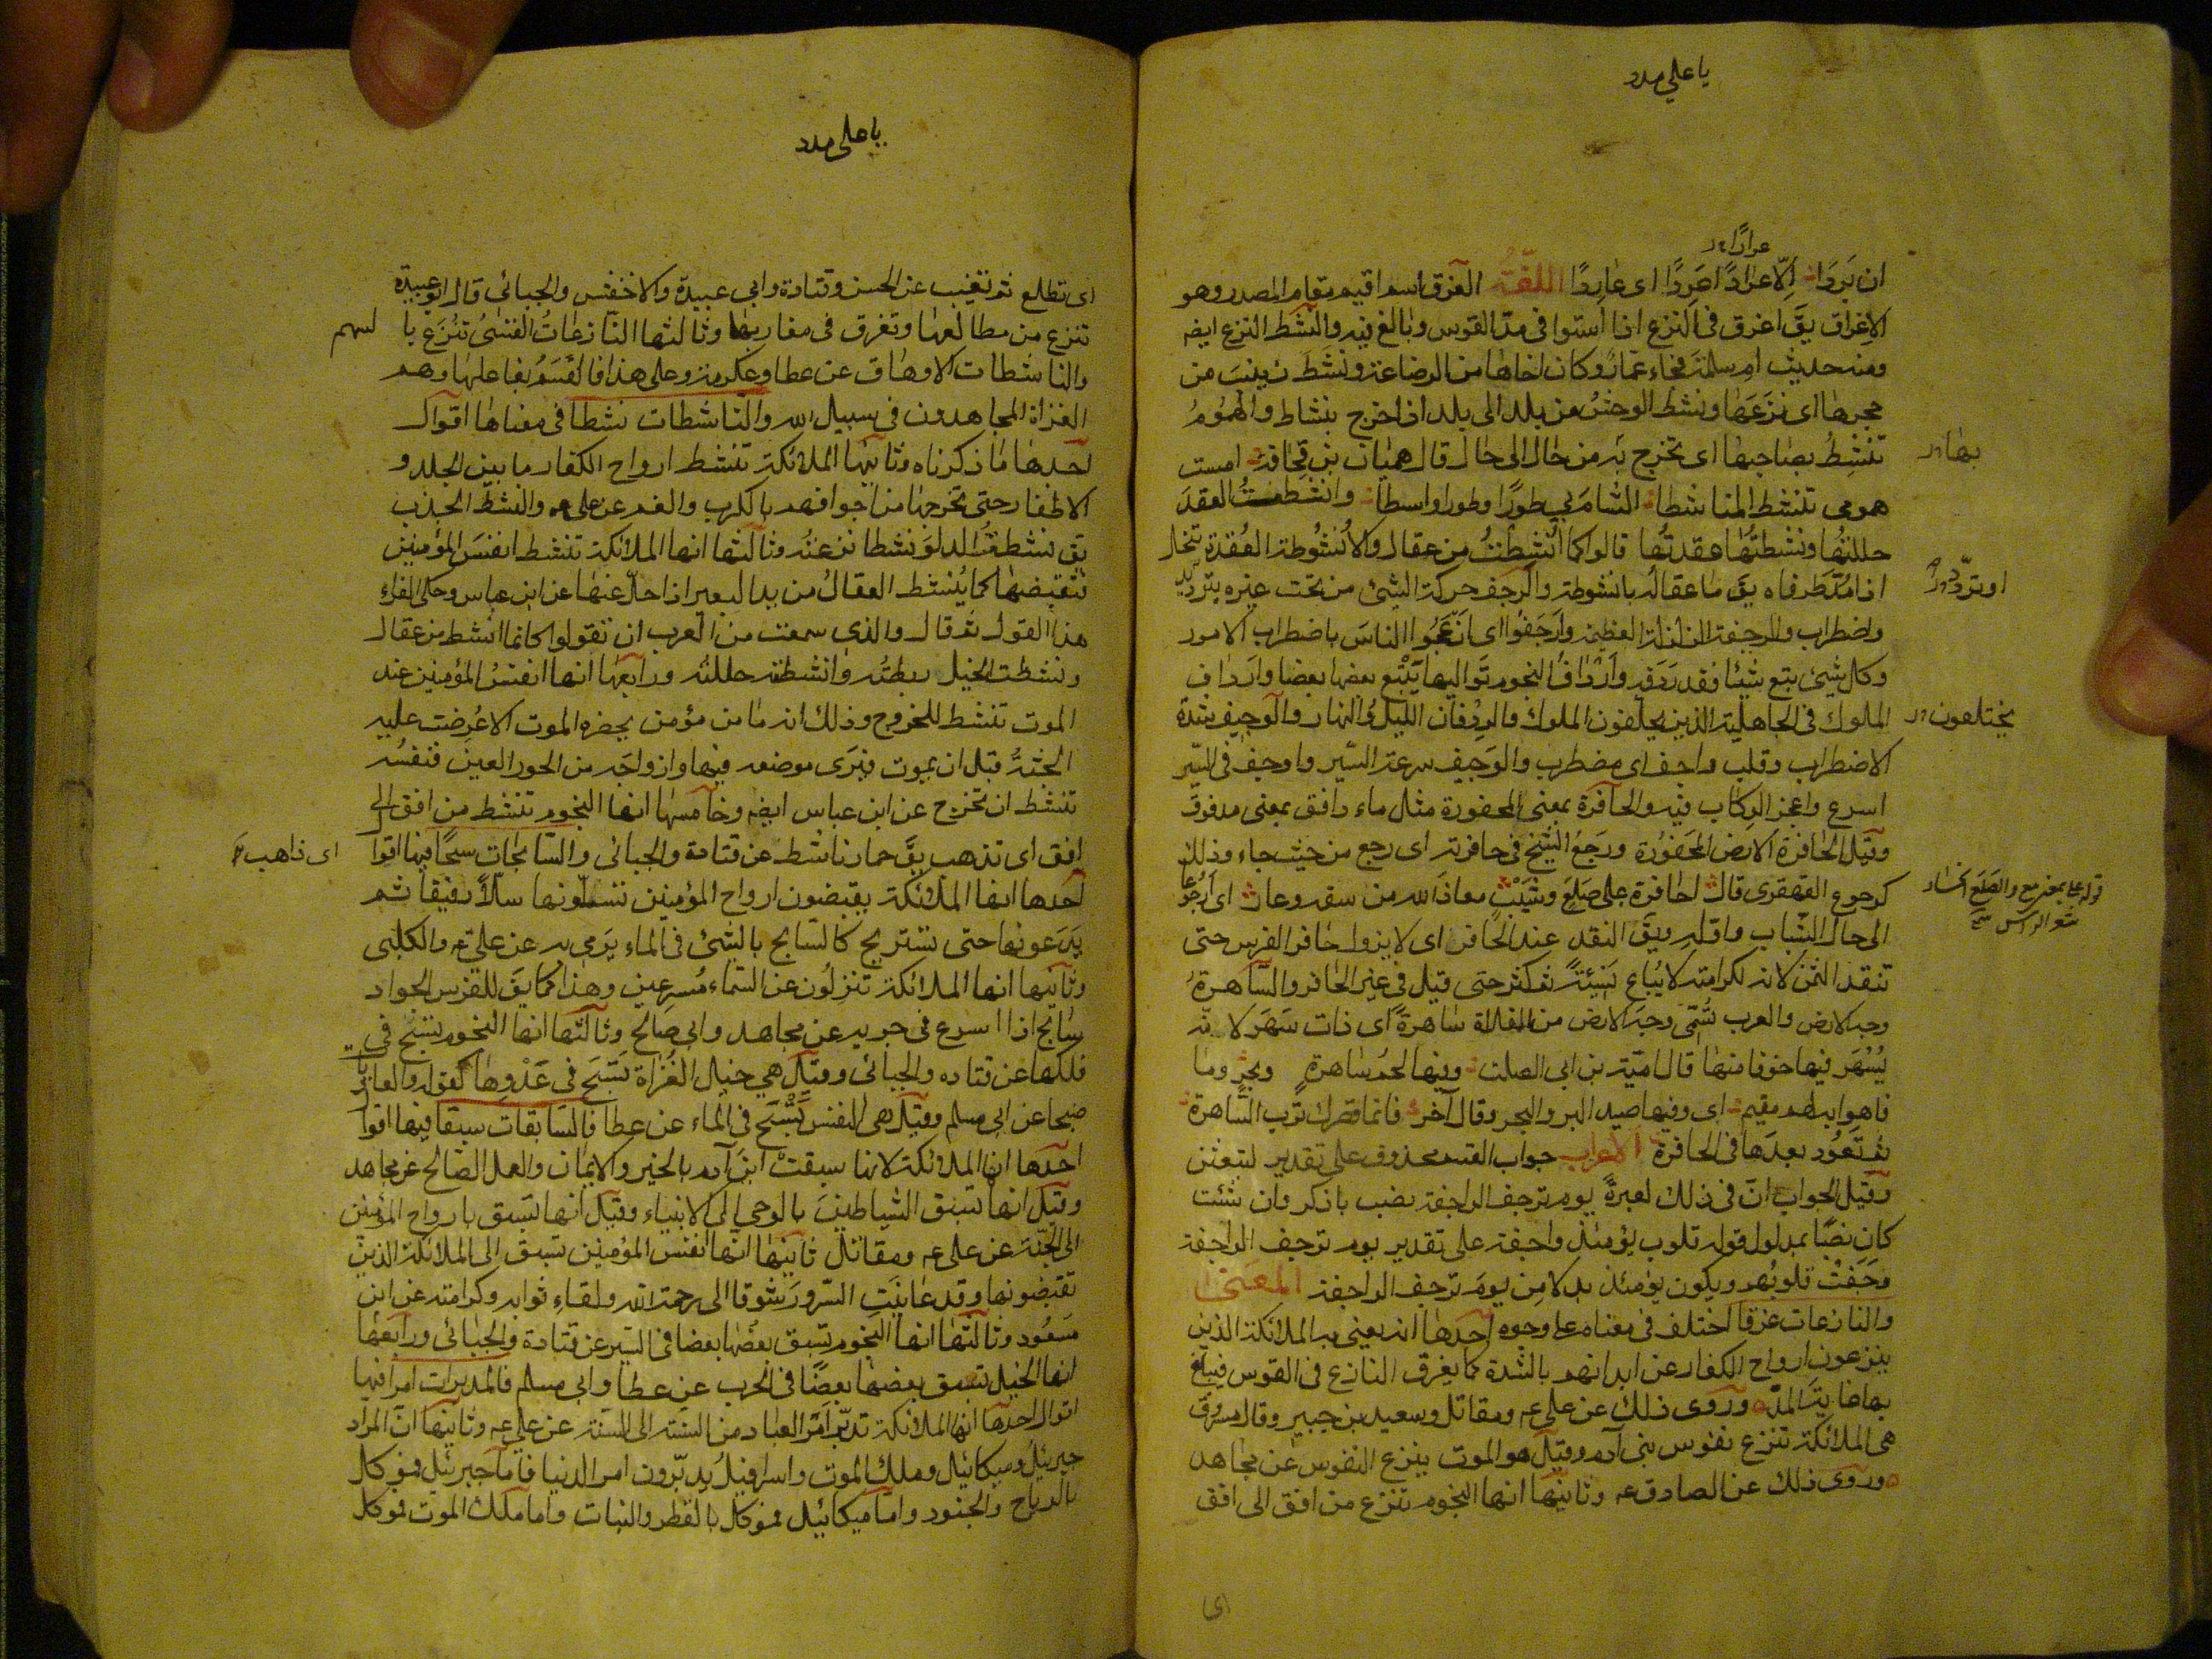 يا علي مدد
عرادًا
ان بَرَدَا اِلّا عرادًا عَرِدًا اى عارِدًا اللغة الغرق اسم اقيم مقام المصدر وهو
الاغراق يقَ اغرق فى النزع اذا استوا فى مدّ القوس وبالغ فيه والنشط النزع ايضه
ومنه حديث ام سلمة فجاء عمّار وكان اخاها من الرضاعة ونشط زينبَ من
حجرها اى نزَعَها ونشط الوحش من بلد الى بلد اذا خرج بنشاط والهمومُ
تَنشِطُ بصاحبها اى تخرج به من حال الى حال قال هميان بن قحافة امست
بها
همومى تنشط المناشطا الشام بي طورًا وطورا واسطا وانشطتُ العقدَ
حللتُها ونشطتُها عقدتُها قالوا كما اُنشِطَتْ من عقال والاُنشُوطة العُقدة تنحل
اذا مُدّ طرفاه يقَ ما عقاله بانشوطة والرجف حركة الشئ من تحت غيره بترديد
او تردّد
واضطراب والرجفة الزلزلة العظيمة وارجَفوا اى ازعَجُوا الناسَ باضطراب الامور
وكل شئ تبع شيئا فقد رَدَفه وارْدافُ النجوم تَواليها يَتْبَع بعضها بعضا وارداف
الملوك فى الجاهلية الذين يخلفون الملوك والرِدْفان الليل والنهار والوجيف شدة
يختلعون
الاضطراب وقلب واجف اى مضطرب والوَجيف سرعة السَير واوجف فى السير
اسرع وازعج الرِكاب فيه والحافرة بمعنى المحفورة مثل ماء دافق بمعنى مدفوق
وقيل الحافرة الارض المَحفوُرة ورَجَعَ الشيخ فى حافرته اى رجع من حيث جاء وذلك
كرجوع القهقرى قال احافرة على صَلَعٍ وشَيْبٍ معاذ الله من سفه وعار اى اَرجُوعًا
الى حال الشباب واوّله ويقَ النقد عند الحافر اى لا يزول حافر الفرس حتى
تنقد الثمن لانه لكرامته لا يُباع نسِيئةً ثم كثر حتى قيل فى غير الحافر والسَاهرةُ
وجه الارض والعرب تُسَمّى وجهَ الارض من الفلاة ساهرةً اى ذات سَهَر لانه
يُسْهَر فيها خوفا منها قال اميّة بن ابى الصلت وفيها لحمُ ساهرةٍ وبحرٍ وما
فاهوا به لهم مقيم اى وفيها صيد البر والبحر وقال آخر فانما قصرك ترب السّاهرة
ثم تَعوُد بعدَها فى الحافرة الاعراب جواب القسم محذوف على تقدير لتبعثن
وقيل الجواب انّ فى ذلك لعبرةً يوم ترجف الراجفة نصب باذكر وان شئت
كان نصبًا بمدلول قوله قلوب يَومئذٍ واجفة على تقدير يوم ترجف الراجفة
وجَفَتْ قلوبُهم ويكون يومئذ بدلا مِن يومَ ترجف الراجفة المعنى
والنازعات غرقًا اختلف فى معناه على وجوه احدها انه يعنى به الملائكة الذين
ينزعون ارواح الكفار عن ابدانهم بالشدة كما يغرق النازع فى القوس فيبلغ
بها غاية المدّ وروى ذلك عن على عه ومقاتل وسعيد بن جبير وقال مسروق
هى الملائكة تنزع نفوس بنى آدم وقيل هو الموت ينزع النفوس عن مجاهد
وروى ذلك عن الصادق عه وثانيها انها النجوم تنزع من افق الى افق
يا على مدد
اى تطلع ثم تغيب عن الحسن وقتادة وابى عبيدة والاخفش والجبائى قال ابو عبيدة
تنزع من مطالعها وتغرق فى مغاربها وثالثها النّازعات القِسىّ تُنزَع با
لسهم
والناشطات الاوهاق عن عطا وعكرمة وعلى هذا فالقَسَمُ بفاعلها وهم
الغزاة المجاهدون فى سبيل الله والنّاشطات نشطا فى معناها اقوال
احدها ما ذكرناه وثانيها الملائكة تنشط ارواح الكفار ما بين الجلد و
الاظفار حتى تخرجها من اجوافهم بالكرب والغم عن على عه والنشط الجذب
يق نشطتُ الدلوَ نشطا نزعتُه وثالثها انها الملائكة تنشط انفسَ المؤمنين
فتقبضها كما يُنشط العقالُ من يد البعير اذا حلّ عنها عن ابن عباس وحكى الفراء
هذا القول ثم قال والذى سمعت من العرب ان تقولوا كانما انشط من عقال
ونشطت الحبل ربطتُه وانشطته حللته ورابعها انها انفسُ المؤمنين عند
الموت تنشط للخروج وذلك انه ما من مؤمن يحضره الموت الا عُرضت عليه
الجنّة قبل ان يموت فيَرَى موضعه فيها وازواجَه من الحور العين فنفسُه
تنشط ان تخرج عن ابن عباس ايضه وخامسها انها النجوم تنشط من افق الى
افق اى تذهب يقَ حمار ناشط عن قتادة والجبائى والسّابحات سبحًا فيها اقوا
اى ذاهب
احدها انها الملائكة يقبضون ارواح المؤمنين نسلّونها سلّا رفيقا ثم
يَدَعونها حتى تستريح كالسّابح بالشئ فى الماء يَرمى به عن على عه والكلبى
وثانيها انها الملائكة تنزلُون عن السّماء مُسرعين وهذا كما يقَ للفرس الجواد
سَابح اذا اسرع فى جريه عن مجاهد وابى صَالح وثالثها انها النجوم تسبح فى
فلكها عن قتاده والجبائى وقيل هى خيل الغُزاة تَسْبَح فى عَدْوِها كقوله والعاديات
ضبحا عن ابى مسلم وقيل هى السُفُن تَسْبَح فى الماء عن عطا فالسّابقات سبقا فيها اقوا
احدها انها الملائكة لانها سبقتْ ابنَ آدم بالخير والايمان والعمل الصّالح عن مجاهد
وقيل انها تسبق الشياطينَ بالوحى الى الانبياء وقيل انها تسبق بارواح المؤمنين
الى الجنّة عن على عه ومقاتل ثانيها انّها انفس المؤمنين تسبق الى الملائكة الذين
تقبضونها وقد عَايَنَتِ السّرورَ شوقا الى رحمة الله ولقاءِ ثوابه وكرامته عن ابن
مسعُود وثالثها انها النجوم تسبق بعضُها بعضا فى السير عن قتادة والجبائى ورابعها
انها الخيل تسبق بعضها بعضًا فى الحرب عن عطا وابى مسلم فالمدبرات امرا فيها
اقوال احدها انها الملائكة تدبّر امْر العباد من السَنة الى السَنة عن على عه وثانيها انّ المراد
جبرئيل وميكائيل وملك الموت واسرافيلُ يدبّرون امر الدنيا فاما جبرئيل فموكل
بالرياح والجنود واما ميكائيل فموكل بالقطر والنبات واما ملك الموت فموكل